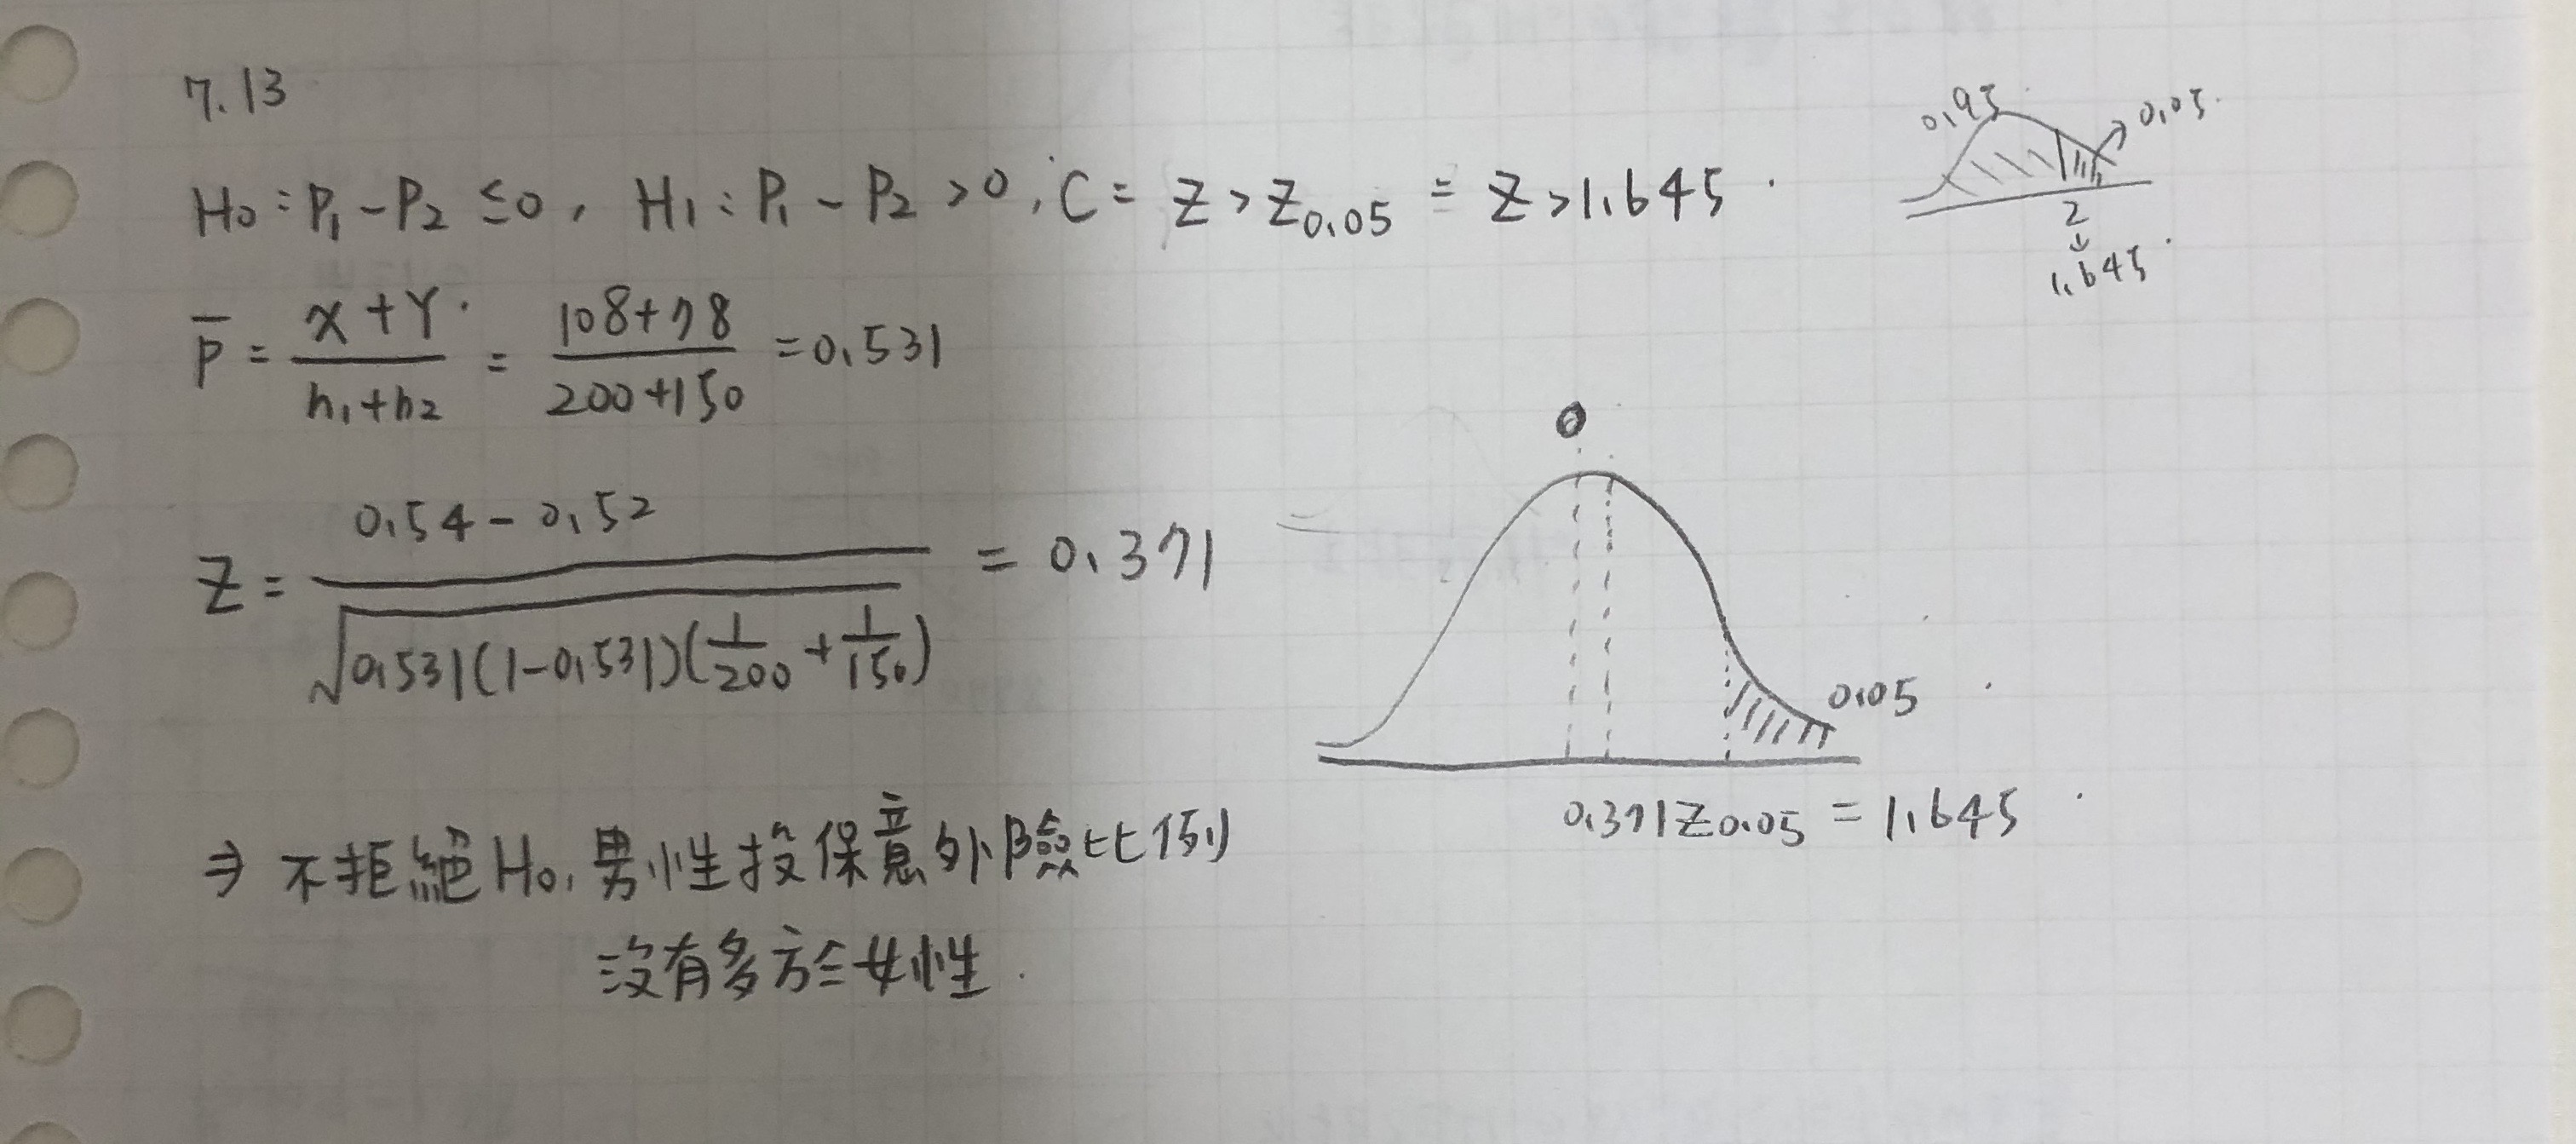 7.13
H₀ : P₁ - P₂ ≤ 0 , H₁ : P₁ - P₂ > 0 , C = Z > Z0.05 = Z > 1.645
0.95 0.05
Z
↓
1.645
p̄ = (X + Y) / (n₁ + n₂) = (108 + 78) / (200 + 150) = 0.531
Z = (0.54 - 0.52) / √(0.531(1 - 0.531)(1/200 + 1/150)) = 0.371
0
0.05
0.371 Z0.05 = 1.645
⇒ 不拒絕H₀, 男性投保意外險比例
沒有多於女性.